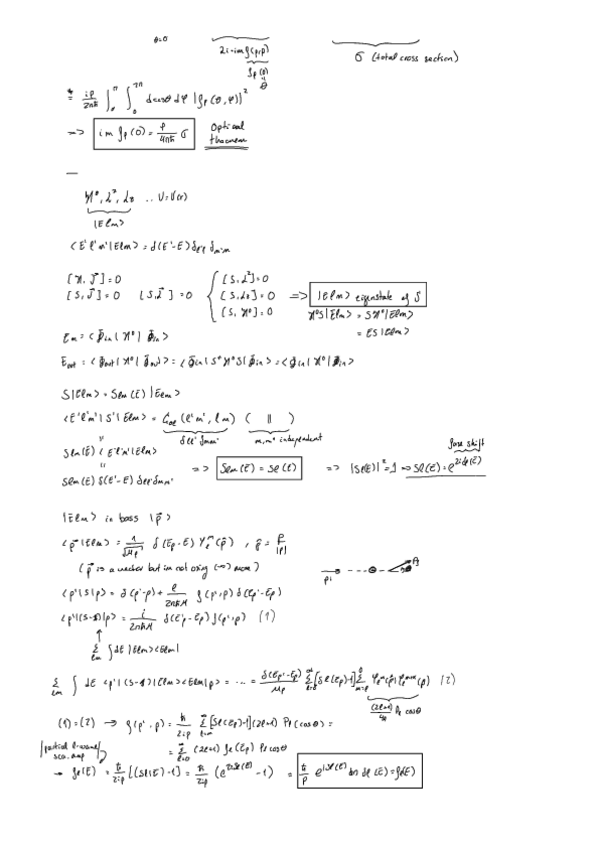 θ=0
2i·im f(p,p)
σ (total cross section)
f_p(0)
= ip/2πħ ∫_0^π ∫_0^{2π} dcosθ dφ |f_p(θ,φ)|²
=> im f_p(0) = p/4πħ σ Optical theorem
—
H⁰, L², L_z .. V=V(r)
|Elm>
<E'l'm'|Elm> = δ(E'-E) δ_l'l δ_m'm
[H, J]=0
[S, J]=0 [S, L]=0 { [S, L²]=0 [S, L_z]=0 [S, H⁰]=0 => |Elm> eigenstate of S
H⁰S|Elm> = SH⁰|Elm>
= ES|Elm>
E_in = <ϕ_in|H⁰|ϕ_in>
E_out = <ϕ_out|H⁰|ϕ_out> = <ϕ_in|S⁺H⁰S|ϕ_in> = <ϕ_in|H⁰|ϕ_in>
S|Elm> = S_lm(E)|Elm>
<E'l'm'|S|Elm> = (l'm', lm) ( || )
δ_ll' δ_mm' m,m' independent
S_lm(E) <E'l'm'|Elm>
S_lm(E) δ(E'-E) δ_ll' δ_mm'
=> S_lm(E) = S_l(E) => |S_l(E)|²=1 => S_l(E) = e^{2iδ_l(E)}
|Elm> in bass |p>
<p|Elm> = 1/√μp δ(E_p-E) Y_l^m(p̂) , p̂ = p/|p|
(p is a vector but im not using (→) more)
<p'|S|p> = δ(p'-p) + i/2πħμ f(p',p) δ(E_p'-E_p)
<p'|(S-1)|p> = i/2πħμ δ(E_p'-E_p) f(p',p) (1)
Σ_lm ∫dE |Elm><Elm|
Σ_lm ∫ dE <p'|(S-1)|Elm><Elm|p> = ... = δ(E_p'-E_p)/μp Σ_{l=0}^∞ [S_l(E_p)-1] Σ Y_l^m(p̂') Y_l^m*(p̂) (2)
(2l+1)/4π P_l cosθ
(1)=(2) → f(p',p) = ħ/2ip Σ [S_l(E_p)-1](2l+1) P_l(cosθ) =
= Σ_{l=0}^∞ (2l+1) f_l(E_p) P_l cosθ
→ f_l(E) = ħ/2ip [(S_l(E)-1] = ħ/2ip (e^{2iδ_l(E)} - 1) = ħ/p e^{iδ_l(E)} sin δ_l(E) = f_l(E)